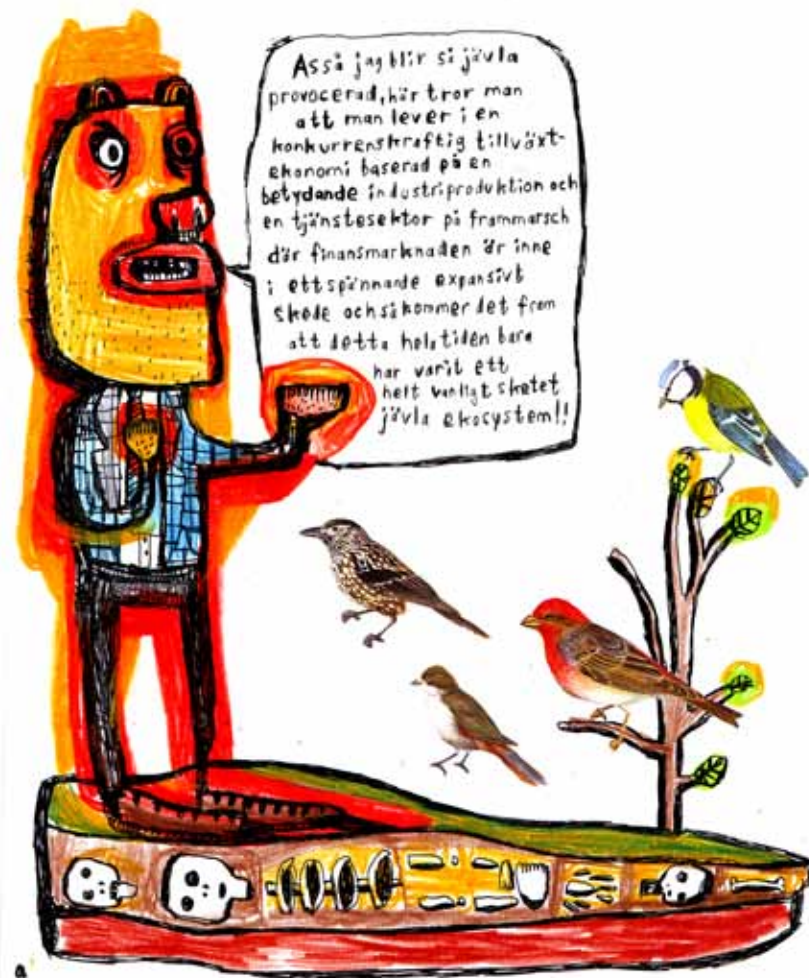 Asså jag blir så jävla
provocerad, här tror man
att man lever i en
konkurrenskraftig tillväxt-
ekonomi baserad på en
betydande industriproduktion och
en tjänstesektor på frammarsch
där finansmarknaden är inne
i ett spännande expansivt
skede och så kommer det fram
att detta hela tiden bara
har varit ett
helt vanligt sketet
jävla ekosystem!!
a